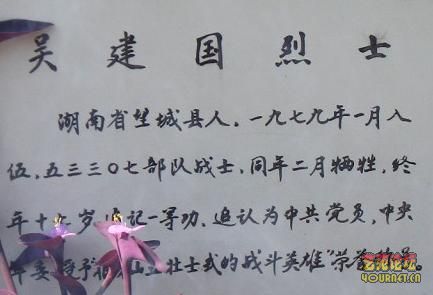 吴建国烈士
湖南省垒城县人,一九七九年一月入
伍,五三三〇七部队战士,同年二月牺牲,终
年十 岁, 记一等功、追认为中共党员,中央
军委授予 山五壮士式的战斗英雄"荣誉
艺龙论坛
4YOURNET.COM